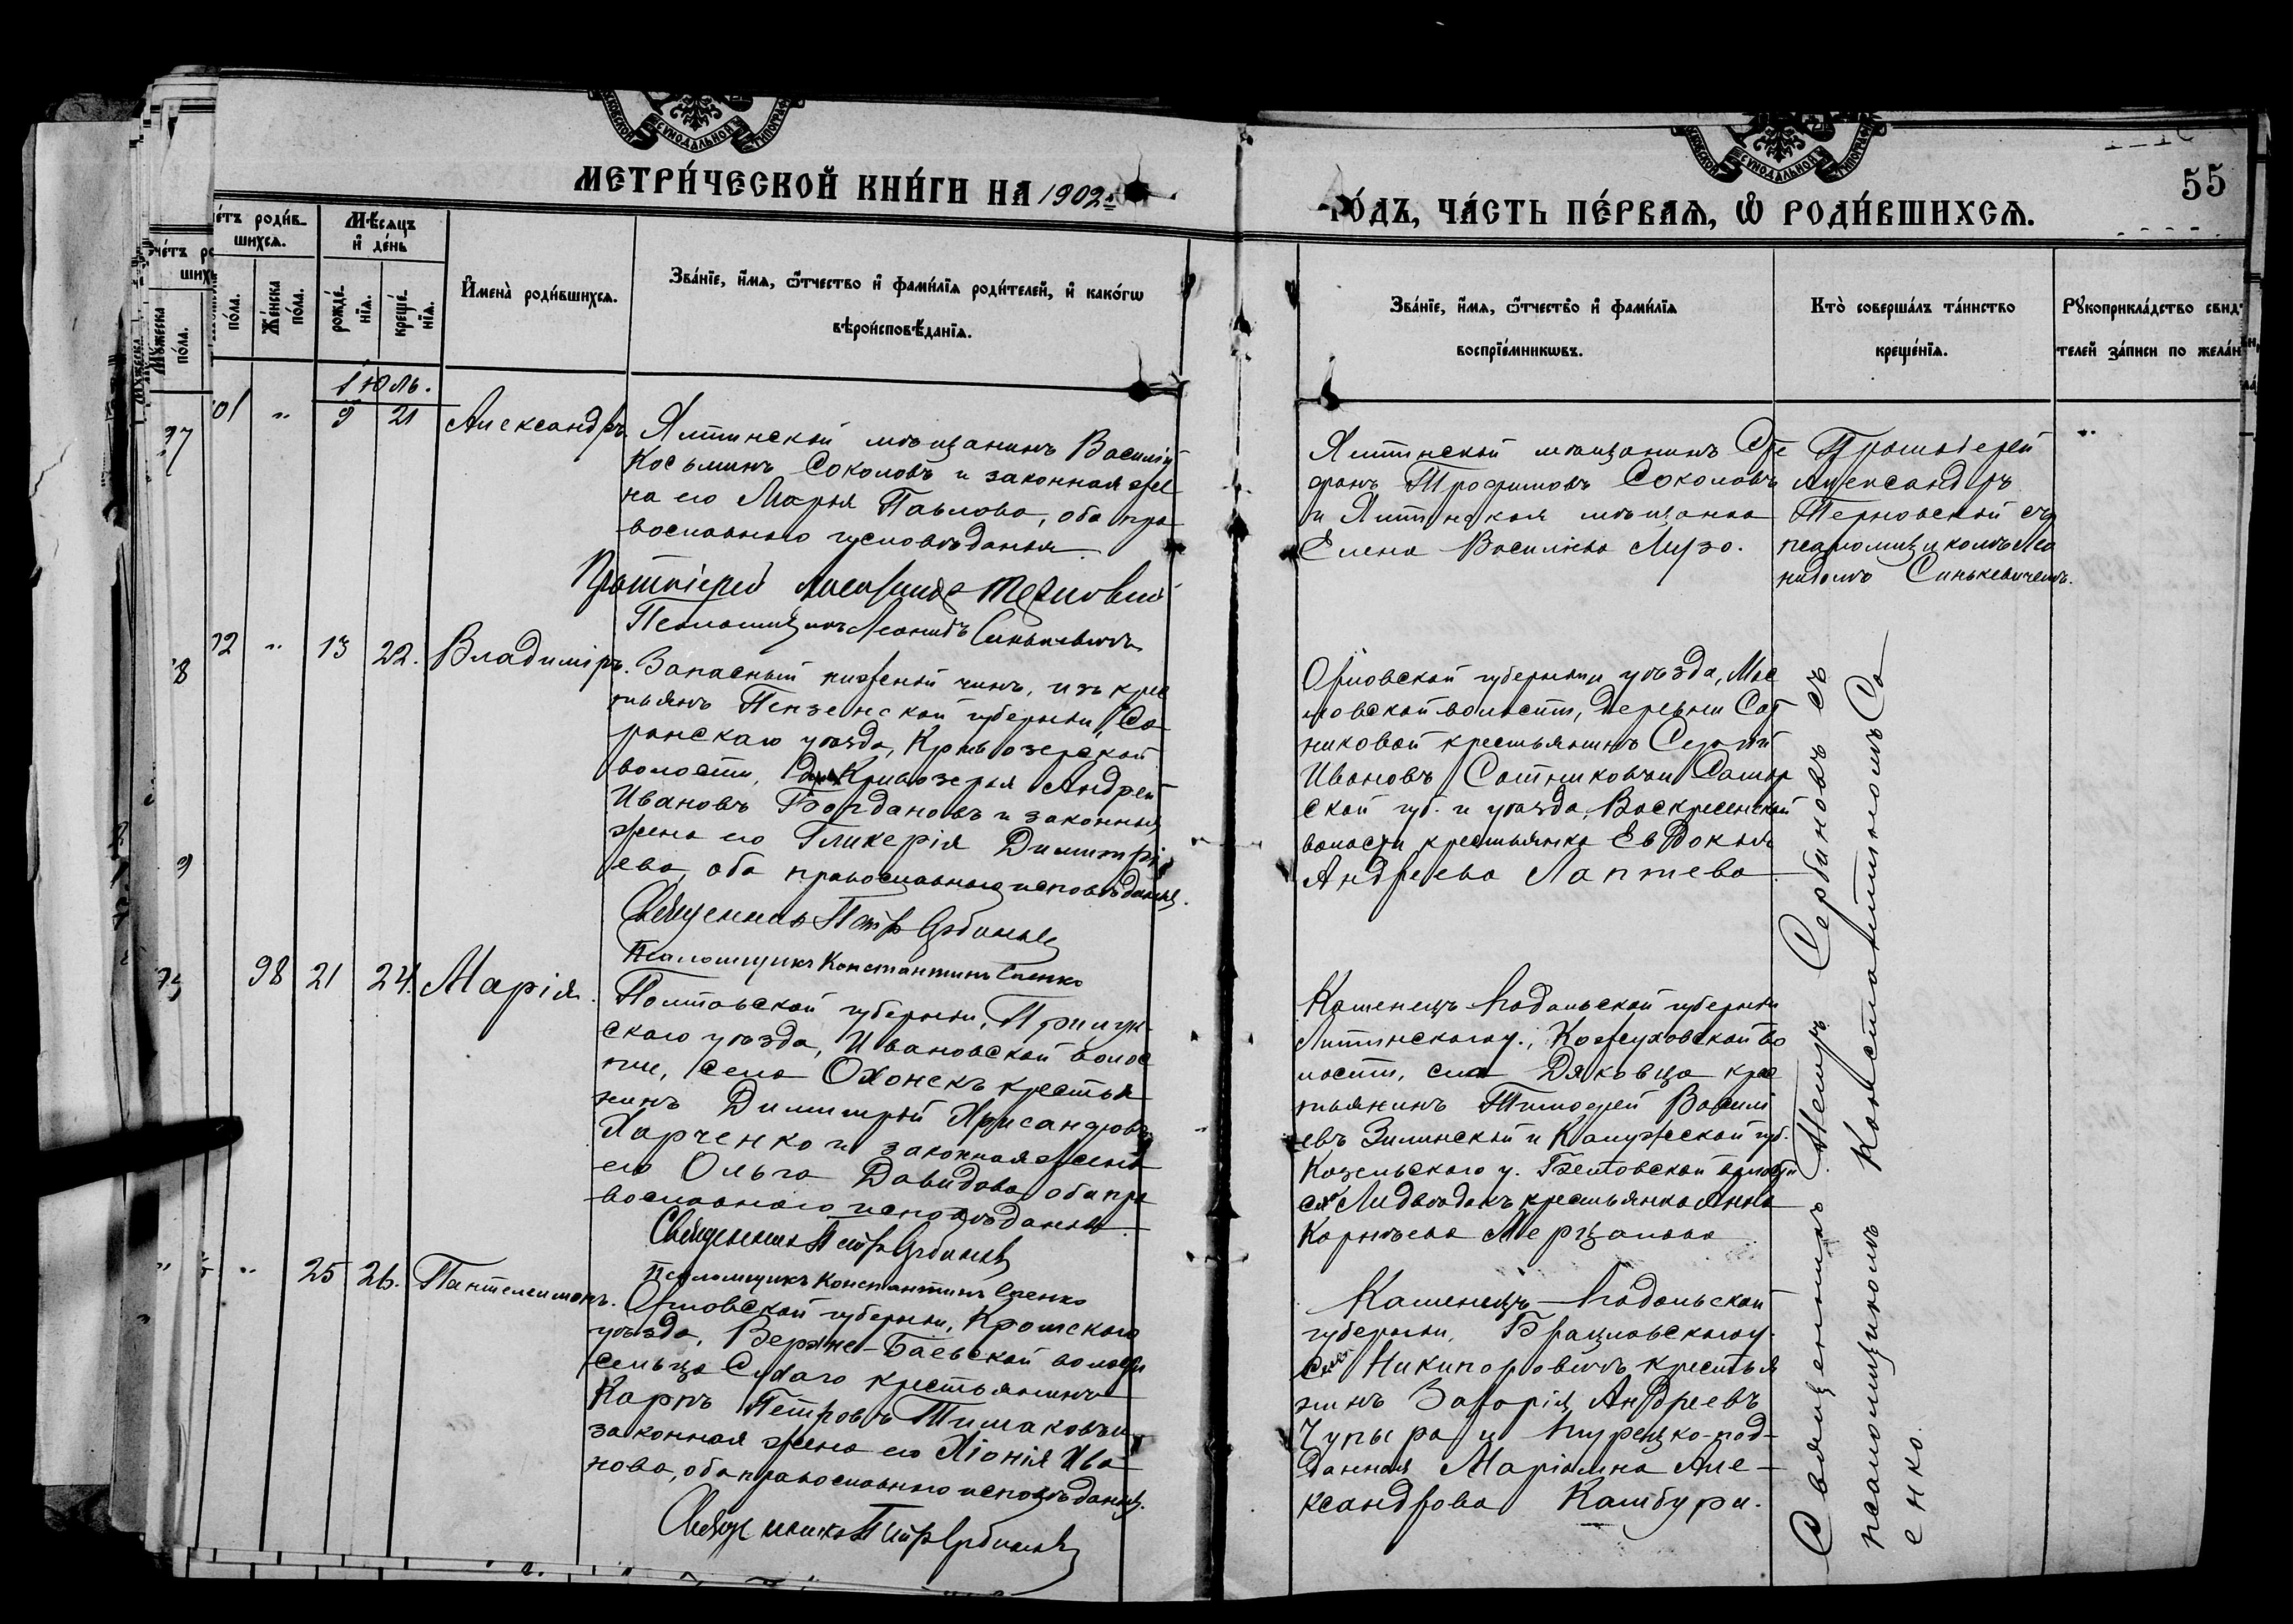 МЕТРИ́ЧЕСКОЙ КНИ́ГИ НА 1902
ГО́ДЪ, ЧА́СТЬ ПЕ́РВАѦ, Ѽ РОДИ́ВШИХСѦ.
55
Мѣ́сѧцъ и҆ де́нь
Же́нска по́ла.
рожде́нїѧ.
креще́нїѧ.
И҆мена̀ роди́вшихсѧ.
Зва́нїе, и҆́мѧ, ѻ҆́тчество и҆ фами́лїѧ роди́телей, и҆ како́гѡ
вѣроисповѣ́данїѧ.
Зва́нїе, и҆́мѧ, ѻ҆́тчество и҆ фами́лїѧ
воспрїе́мникѡвъ.
Кто̀ соверша́лъ та́инство
креще́нїѧ.
Рꙋкоприкла́дство свид
телей за́писи по жела́н
Іюль.
9 21 Александръ
Ялтинскій мѣщанинъ Василій
Косьминъ Соколовъ и законная же
на его Марья Павлова, оба пра
вославнаго исповѣданія
Протоіерей Александръ Терновскій
Псаломщикъ Леонидъ Синькевичъ
Ялтинскій мѣщанинъ Сте
фанъ Трофимовъ Соколовъ
и Ялтинская мѣщанка
Елена Васильева
Протоіерей
Александръ
Терновскій съ
псаломщикомъ Лео
нидомъ Синькевичемъ.
13 22. Владиміръ.
Запасный нижній чинъ, изъ крес
тьянъ Пензенской губерніи, Са
ранскаго уѣзда, Кривозерской
волости, Кривозерья Андрей
Ивановъ Богдановъ и законная
жена его Гликерія Димитрі
ева, оба православнаго исповѣданія.
Священникъ Петръ Сербиновъ
Псаломщикъ Константинъ Саенко
Орловской губерніи и уѣзда,
ловской волости, деревни Сот
никовой крестьянинъ Сергій
Ивановъ Сотниковъ и Самар
ской губ. и уѣзда, Воскресенской
волости крестьянка Евдокія
Андреева Лаптева
98 21 24. Марія.
Полтавской губерніи, Прилук
скаго уѣзда, Ивановской волос
ти, села крестья
нинъ Димитрій Хрисанфовъ
Харченко и законная жена
его Ольга Давидова, оба пра
вославнаго исповѣданія
Священникъ Петръ Сербиновъ
Псаломщикъ Константинъ Саенко
Каменецъ-Подольской губерніи
Литинскаго у., Кожуховской во
лости, села Дяковца крес
тьянинъ Тимофей Василі
евъ Зилинскій и Калужской губ.
Козельскаго у. волости
крестьянка Анна
Корнѣева
25 26. Пантелеимонъ.
Орловской губерніи, Кромскаго
уѣзда, Верхне-Баевской волости
сельца Сухаго крестьянинъ
Карпъ Петровъ Тимаковъ и
законная жена его Хіонія Ива
нова, оба православнаго исповѣданія.
Священникъ Петръ Сербиновъ
Каменецъ-Подольской
губерніи, Брацлавскаго у.
крестья
нинъ Захарія Андреевъ
Чупыра и турецко-под-
данная Маріамна Але-
ксандрова Камбури.
Священникъ Петръ Сербиновъ съ
псаломщикомъ Константиномъ Са
енко.